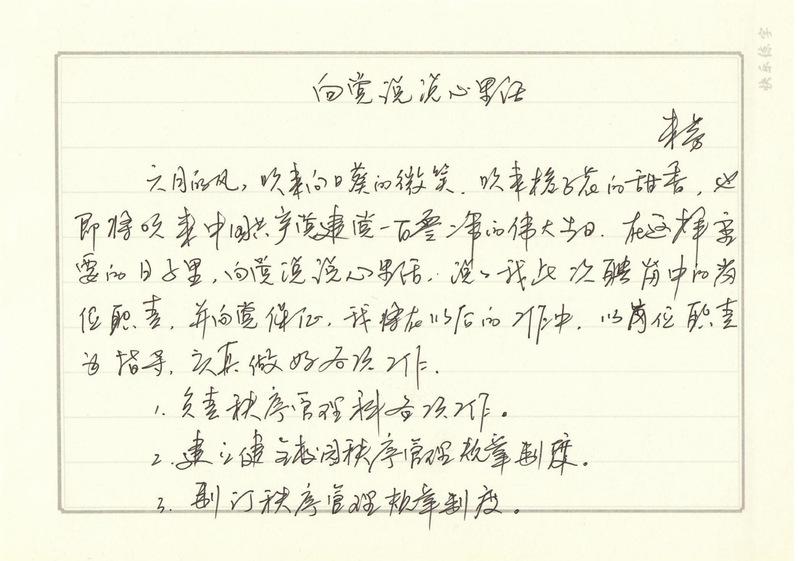 快乐练字
向党说说心里话
六月的风，吹来向日葵的微笑，吹来栀子花的甜香，也
即将吹来中国共产党建党一百零二年的伟大生日。在这样重
要的日子里，向党说说心里话，说说我此次聘岗中的岗
位职责，并向党保证，我将在以后的工作中，以岗位职责
为指导，认真做好各项工作。
1. 负责秩序管理科各项工作。
2. 建立健全校园秩序管理规章制度。
3. 制订秩序管理规章制度。